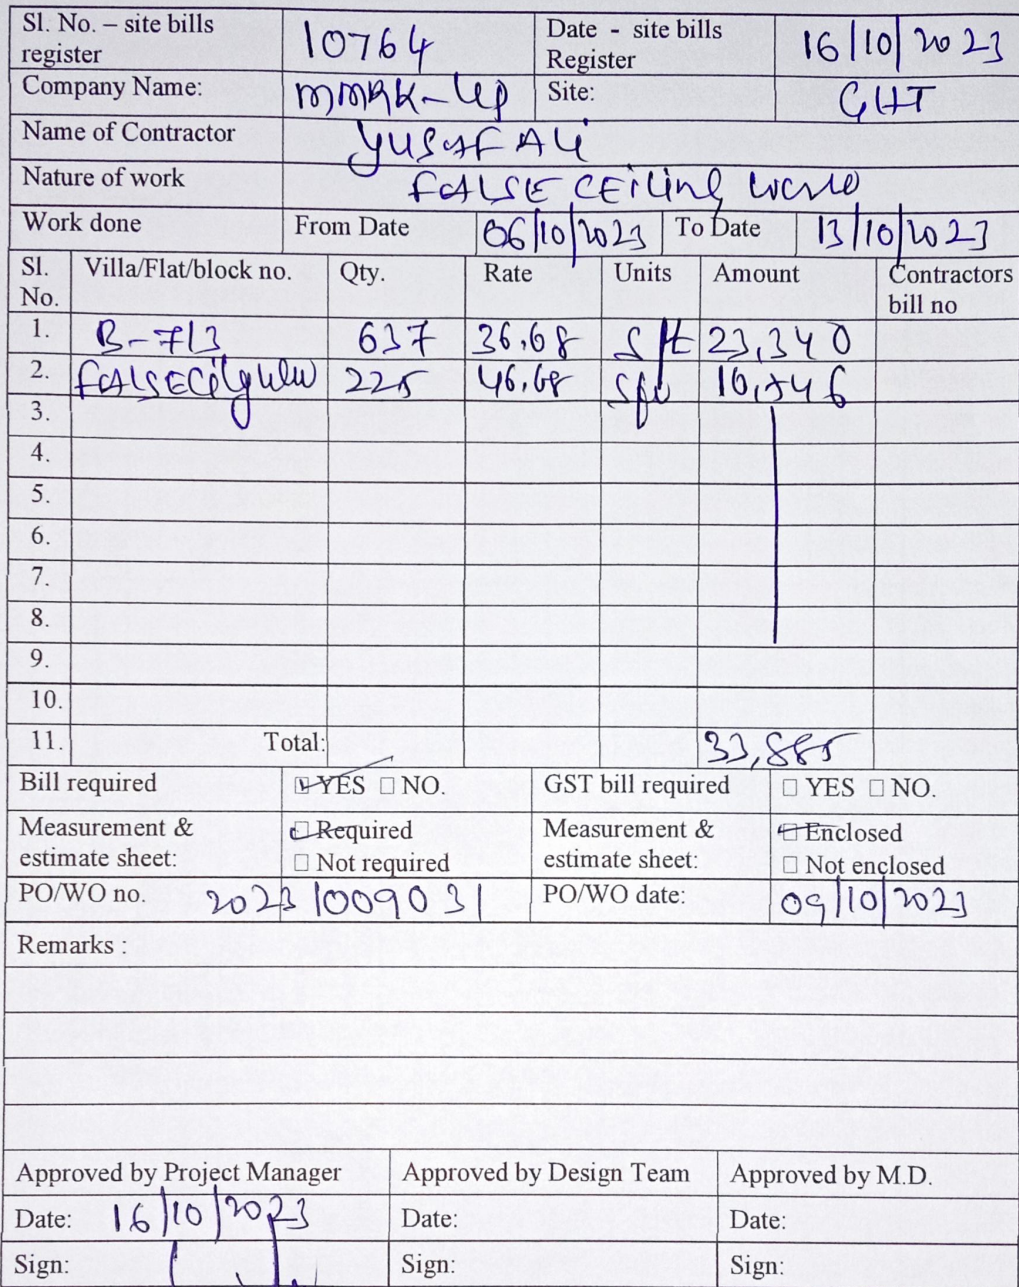 Sl. No. – site bills register 10764 Date - site bills Register 16/10/2023
Company Name: MMRK-up Site: GHT
Name of Contractor YUSAFALi
Nature of work FALSE CEiling work
Work done From Date 06/10/2023 To Date 13/10/2023
Sl. No. Villa/Flat/block no. Qty. Rate Units Amount Contractors bill no
1. B-713 637 36.68 sft 23,340
2. FALSE 225 46.68 10,546
3.
4.
5.
6.
7.
8.
9.
10.
11. Total: 33,885
Bill required ☑ YES □ NO. GST bill required □ YES □ NO.
Measurement & estimate sheet: □ Required □ Not required Measurement & estimate sheet: □ Enclosed □ Not enclosed
PO/WO no. 2023/009031 PO/WO date: 09/10/2023
Remarks :
Approved by Project Manager Approved by Design Team Approved by M.D.
Date: 16/10/2023 Date: Date:
Sign: Sign: Sign: